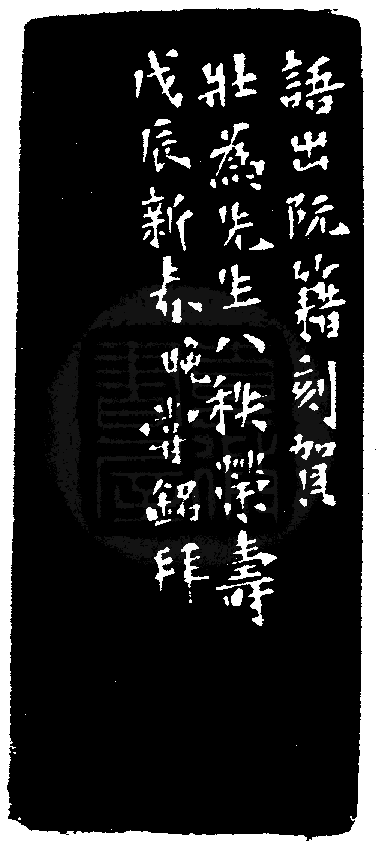 語出阮籍刻賀
壯為先生八秩榮壽
戊辰新春晚嘗銘拜